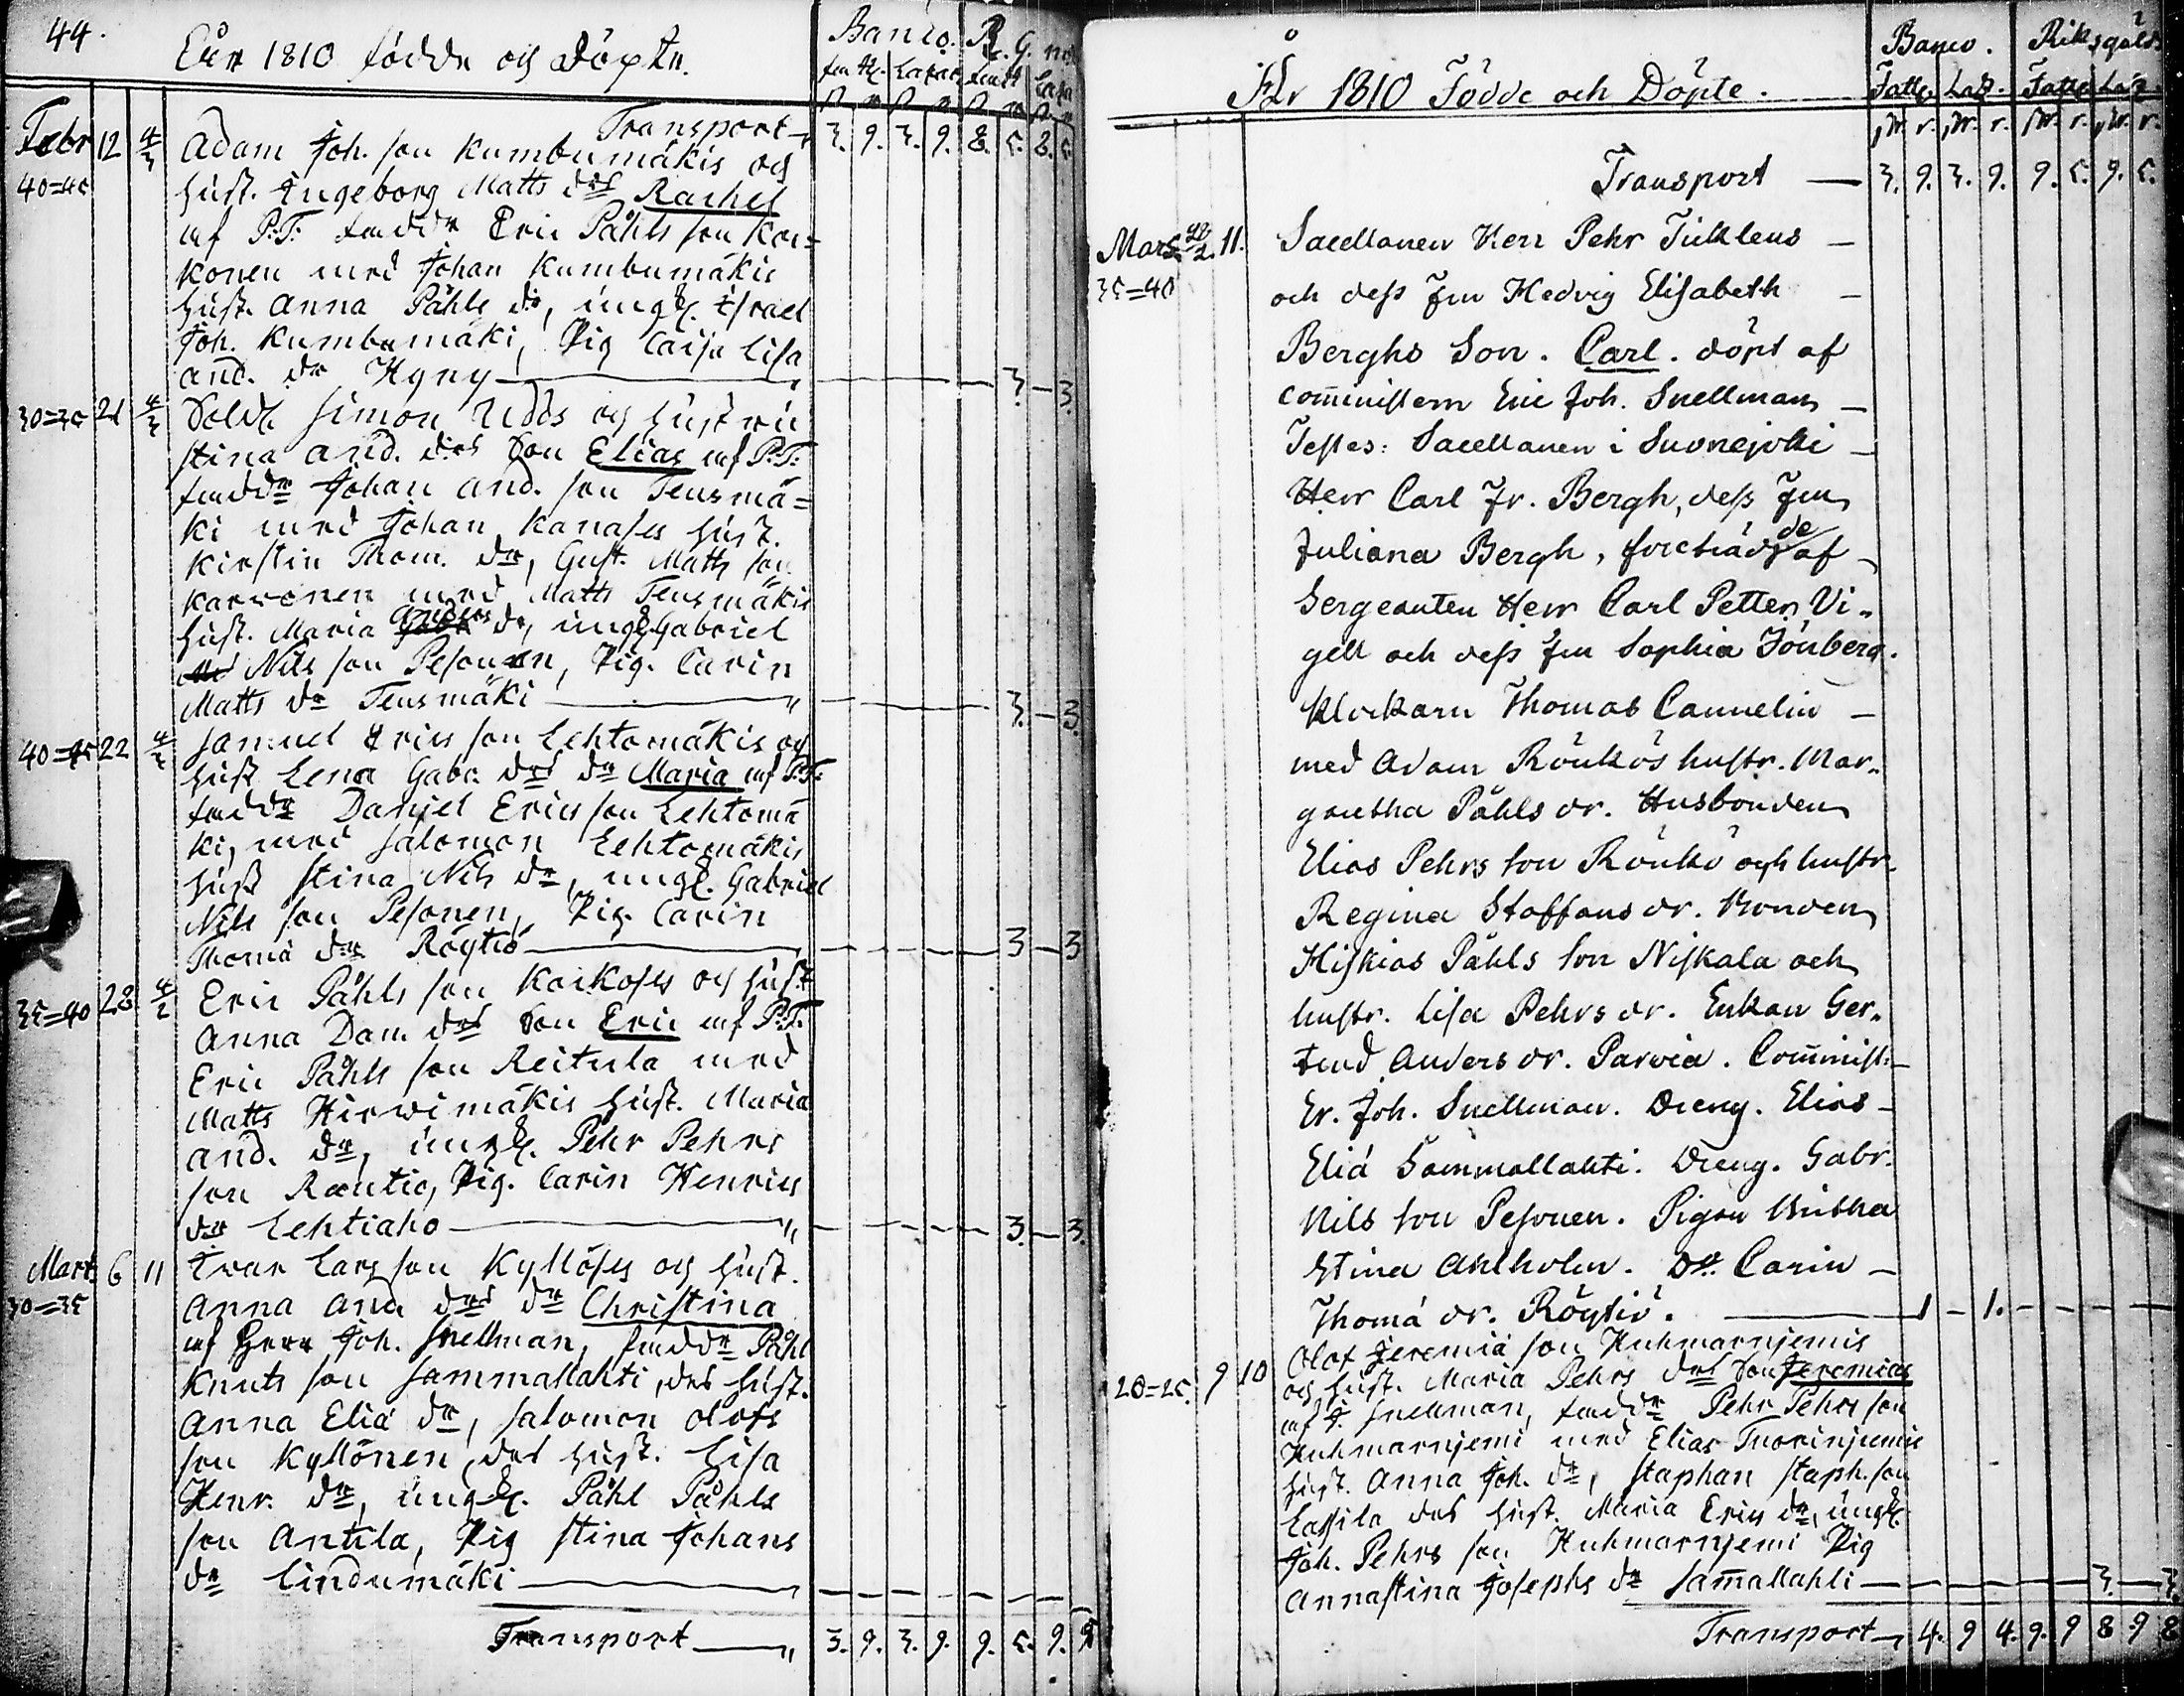 44.
År 1810 födde och Döpte.
Banco. R. G.
Transport 3. 9. 3. 9. 8. 5. 8. 5.
Febr 12 4/3 Adam Joh. son Kumbumäkis och
40=45 hust. Ingeborg Matts drs Rachel
af P.T. faddr Eric Påhls son Kai=
konen med Johan Kumbumäkis
hust. Anna Påhls dr, Israel
Joh. Kumbumäki, Pig Caisa Lisa
And. dr Hyny 3 - 3.
30=35 21 4/3 Sold. Simon Udds och hustru
Stina And. drs Son Elias af P.T.
faddr Johan And. son Teusmä=
ki med Johan Kanases hust.
Kirstin Thom. dr, Gust. Matts son
Karvonen med Matts Teusmäkis
hust. Maria Anders dr, Gabriel
Nils son Pesonen, Pig. Carin
Matts dr Teusmäki 3. - 3.
40=45 22 4/3 Samuel Erics son Lehtomäkis och
hust Lena Gabr. drs dr Maria af P.T.
faddr Daniel Erics son Lehtomä
ki, med Salomon Lehtomäkis
hust Stina Nils dr, Gabriel
Nils son Pesonen, Pig. Carin
Thomä dr Röytiö 3 - 3
35=40 28 4/2 Eric Påhls son Kaikoses och hust
Anna Dan. drs Son Eric af P.T.
Eric Påhls son Reitula med
Matts Hirwimäkis hust. Maria
And. dr, Pehr Pehrs
son Rautio, Pig. Carin Henrics
dr Lehtiaho 3. - 3.
Mart. 6 11 Ivar Lars son Kyllöses och hust.
30=35 Anna And. drs dr Christina
af Herr Joh. Snellman, faddr Påhl
Knuts son Sammallahti, des hust.
Anna Eliä dr, Salomon Olofs
son Kyllönen, des hust. Lisa
Henr. dr, Påhl Påhls
son Antila, Pig Stina Johans
dr Lindumäki
Transport 3. 9. 3. 9. 9. 5. 9. 5
År 1810 Födde och Döpte.
Banco. Riksgälds
Fattig. Laz. Fattig. Laz.
Transport 3. 9. 3. 9. 9. 5. 9. 5.
Mars 2. 11. Sacellanen Herr Pehr Ticklens
35=40 och dess Fru Hedvig Elisabeth
Berghs Son. Carl. döpt af
Com̄inistern Eric Joh. Snellman
Testes: Sacellanen i Suonejoki
Herr Carl Fr. Bergh, dess Fru
Juliana Bergh, af
Sergeanten Herr Carl Petter Vi=
gell och dess Fru Sophia Fönberg.
Klockarn Thomas Cannelin
med Adam Rönkös hustr. Mar=
garetha Påhls dr. Husbonden
Elias Pehrs son Rönkö och hustr.
Regina Staffans dr. Bonden
Hiskias Påhls son Niskala och
hustr. Lisa Pehrs dr. Enkan Ger=
trud Anders dr. Parvia. Com̄inist:
Er. Joh. Snellman. Dreng. Elias
Eliä Sammallahti. Dreng. Gabr.
Nils son Pesonen. Pigan Britha
Stina Ahlholm. Do. Carin
Thomä dr. Röytiö. 1 - 1.
Olof Jeremiä son Huhmarnjemis
20=25. 9 10 och hust. Maria Pehrs drs Son Jeremias
af J. Snellman, faddr Pehr Pehrs son
Huhmarnjemi med Elias Tuorinjemis
hust. Anna Joh. dr, Staphan Staph. son
Lassila des hust. Maria Erics dr,
Joh. Pehrs son Huhmarnjemi Pig
Annastina Josephs dr Sam̄allahti 3. - 3.
Transport 4. 9 4. 9. 9 8 9 8